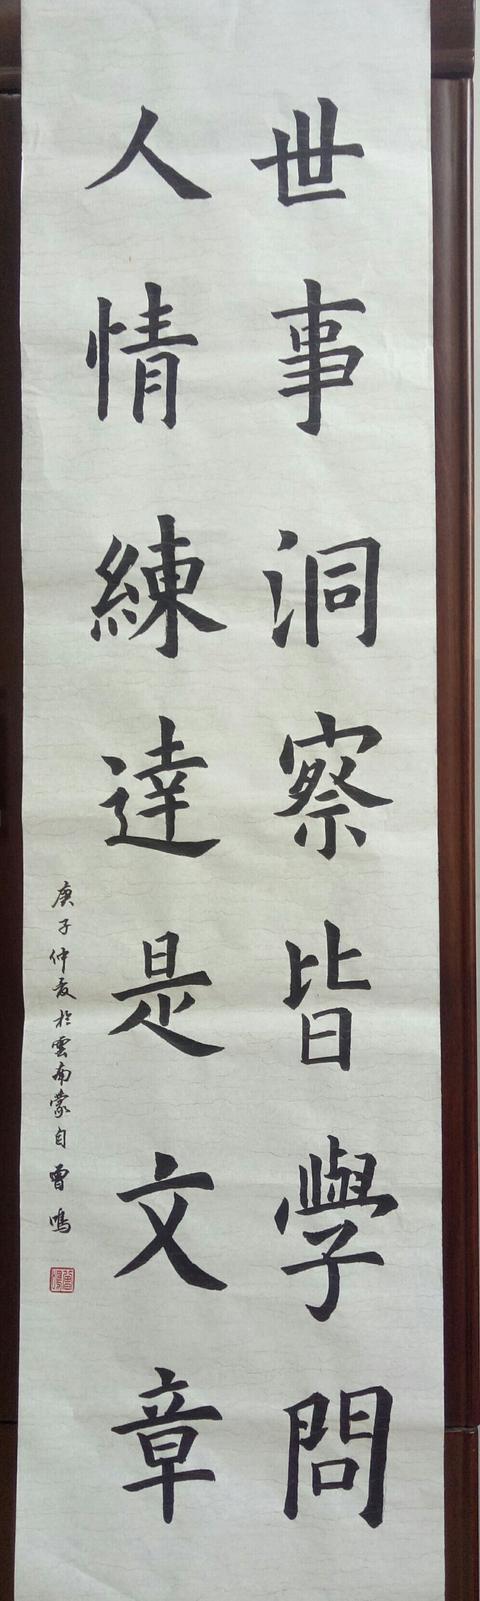 世事洞察皆學問
人情練達是文章
庚子仲夏於雲南蒙自曾鳴